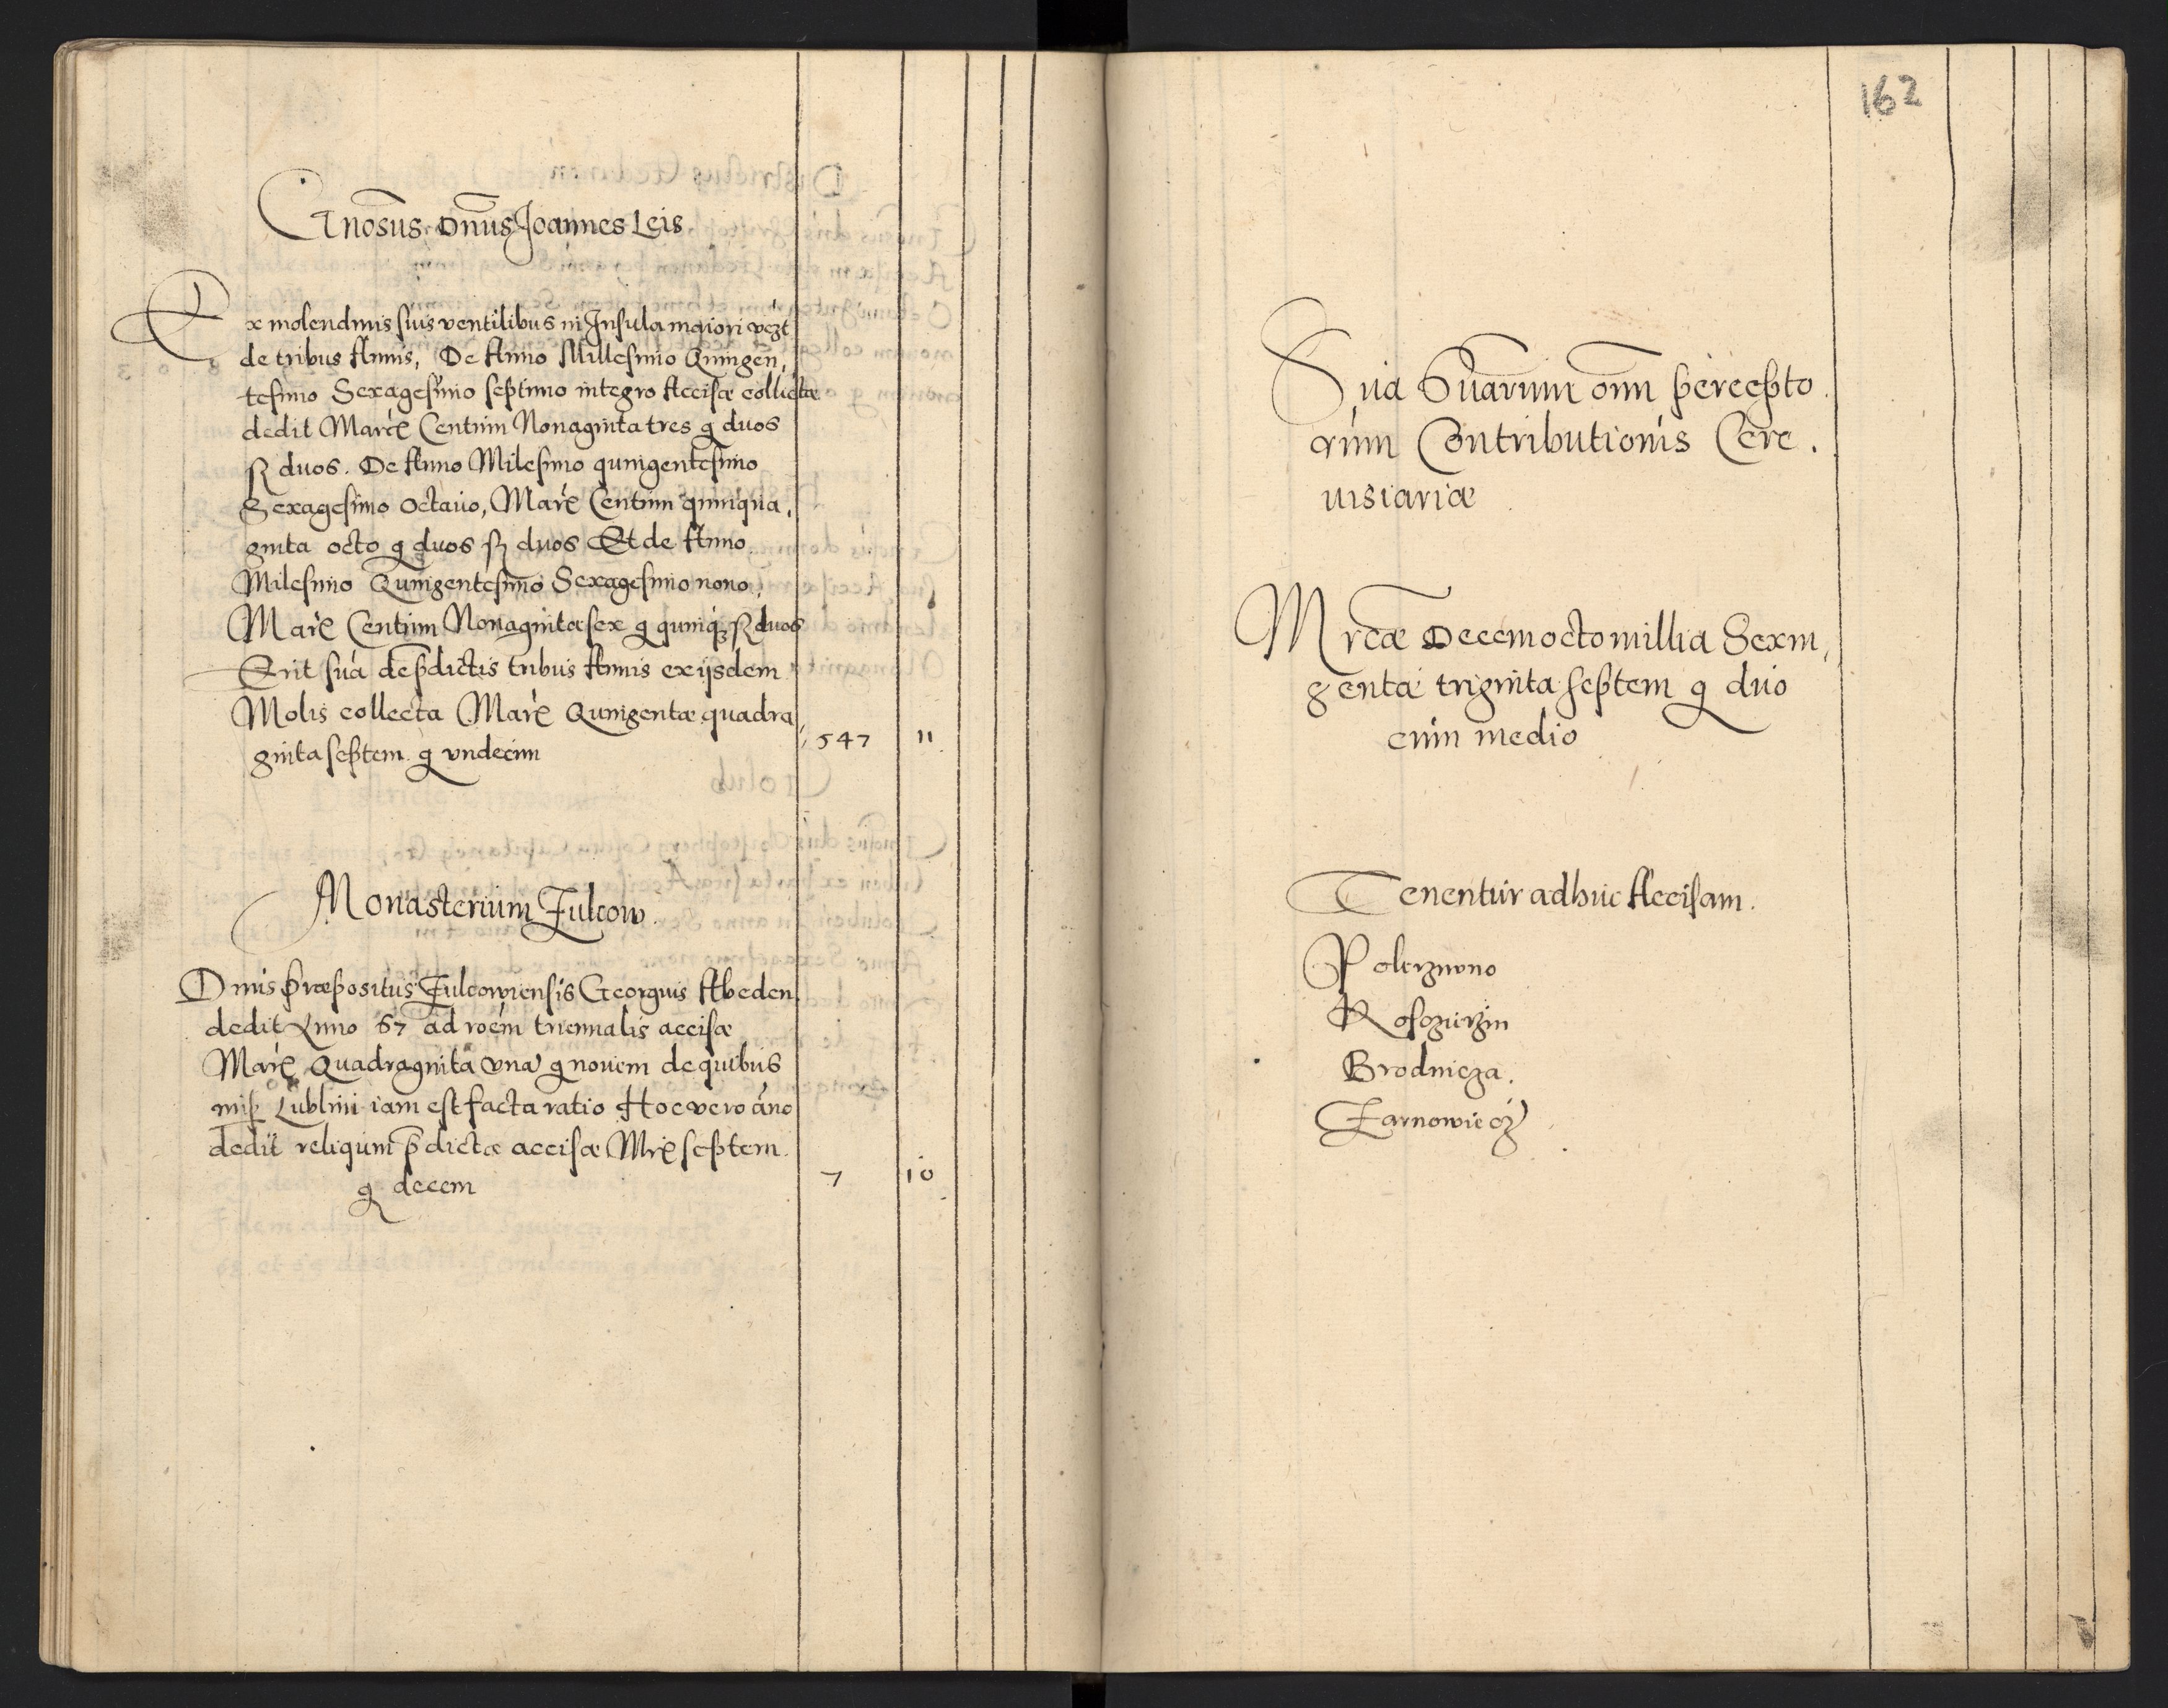 Gnosus Dnus Joannes Leis
Ex molendinis suis ventilibus in Insula maiori vczt
de tribus Annis, De Anno Millesimo Quingen,
tesimo Sexagesimo septimo integro Accisæ collectæ
dedit Marc Centum Nonaginta tres g duos
ß duos. De Anno Milesimo quingentesimo
Sexagesimo octauo, Marc Centum quinqua,
ginta octo g duos ß duos Et de Anno
Milesimo Quingentesimo Sexagesimo nono,
Marc Centum Nonaginta sex g quinqz ß duos
Erit sua de pdictis tribus Annis ex ijsdem
Molis collecta Marc Quingentæ quadra,
ginta septem g vndecim 547 11
Monasterium Zukow.
Dnus præpositus Zukowiensis Georgius Abeden
dedit Anno 67 ad roem triennalis accisæ
Marc Quadraginta vna g nouem de quibus
Lublini iam est facta ratio Hoc vero ano
dedit reliquum pdictæ accisæ Mrc septem
g decem 7 10
162
Sua Suarum om percepto.
rum Contributionis Cere.
uisiariæ
Mrcæ Decem octo millia Sexin,
genta triginta septem g duo
cum medio
Tenentur adhuc Accisam.
Polerzwno
Brodnicza.
Zarnowiecz